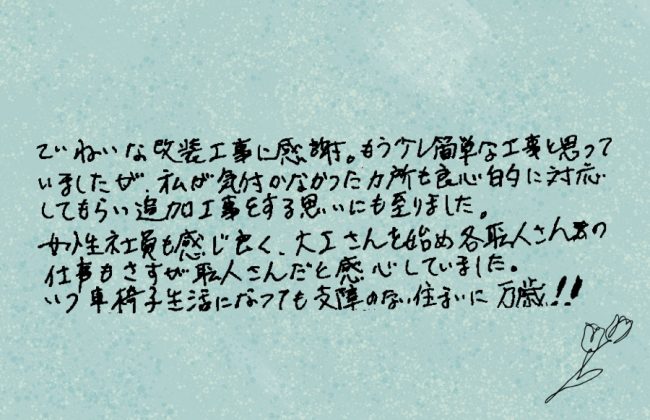 ていねいな改装工事に感謝。もう少し簡単な工事と思って
いましたが、私が気付かなかったカ所も良心的に対応
してもらい追加工事をする思いにも至りました。
女性社員も感じ良く、大工さんを始め各職人さん方の
仕事もさすが職人さんだと感心していました。
いつ車椅子生活になっても支障のない住まいに万歳!!